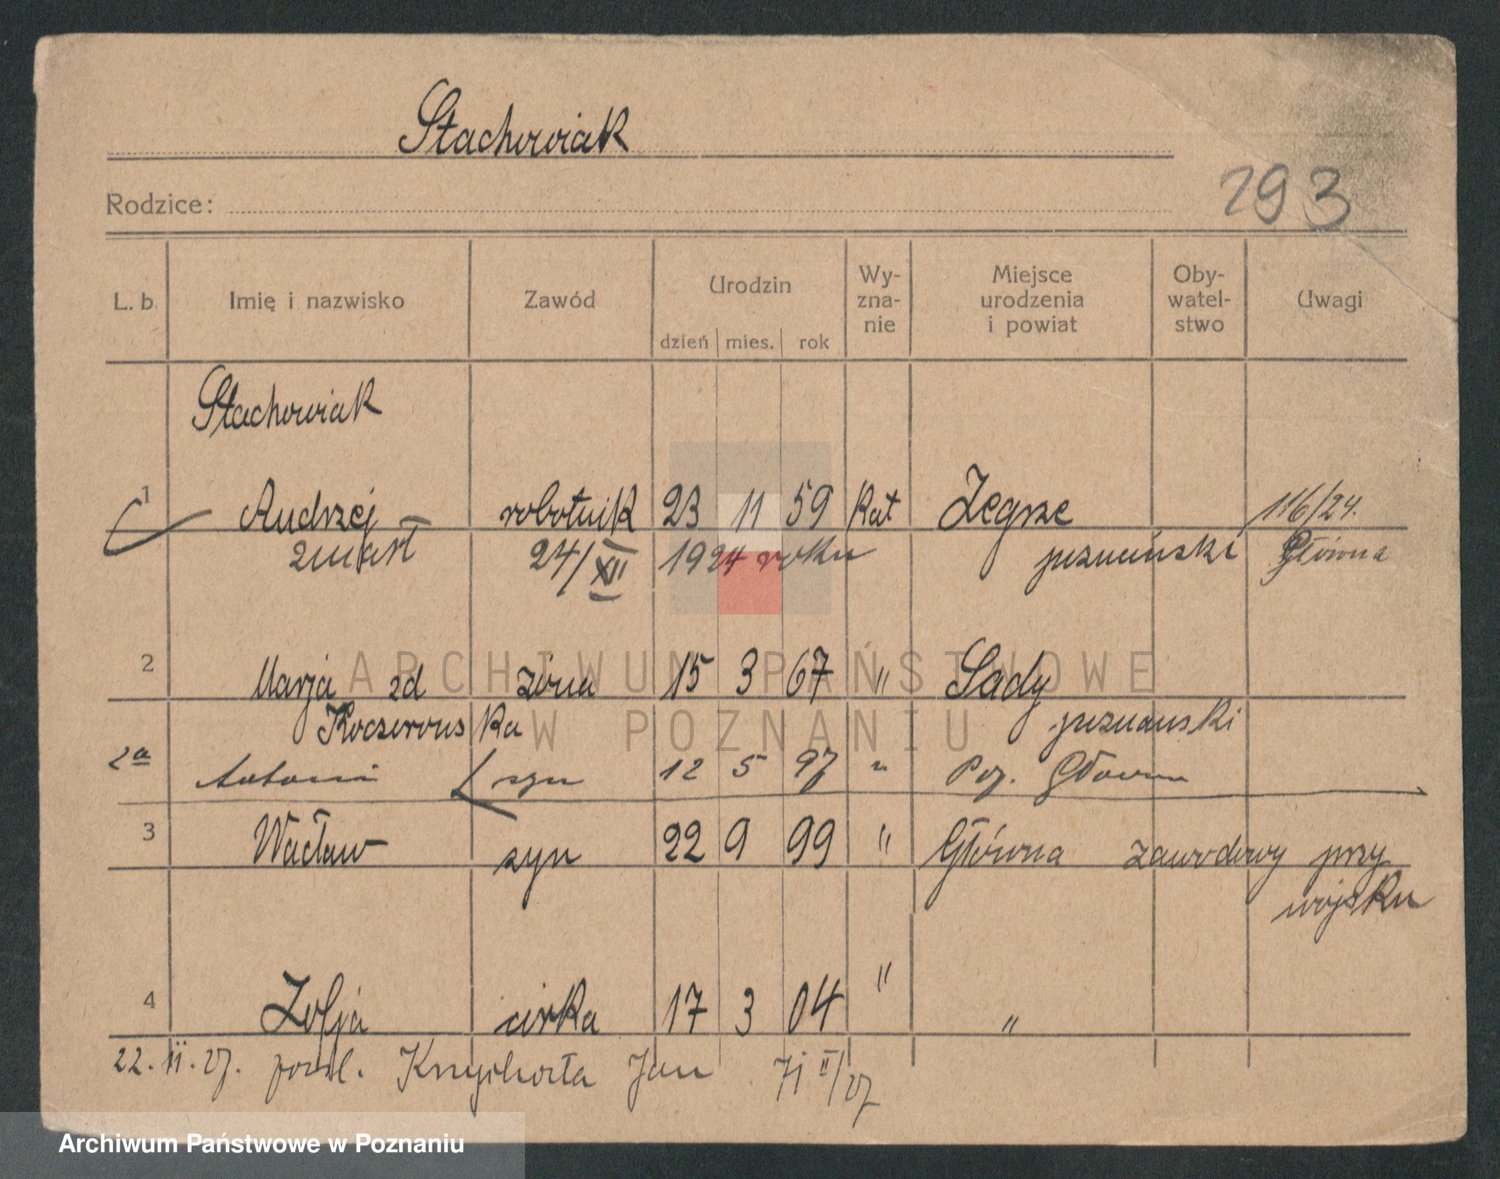 Stachowiak
Rodzice:
293
L. b. Imię i nazwisko Zawód Urodzin dzień mies. rok Wy-zna-nie Miejsce urodzenia i powiat Oby-watel-stwo Uwagi
Stachowiak
1 Andrzej robotnik 23 11 59 kat Zegrze 116/24.
zmarł 24/XII 1924 roku poznański Główna
2 Marja zd żona 15 3 67 " Sady
poznański
2a Antoni syn 12 5 97 " Poz. Główna
3 Wacław syn 22 9 99 " Główna zawodowy przy
wojsku
4 Zofja córka 17 3 04 " "
22.II.27. Jan 71 II/27
ARCHIWUM PAŃSTWOWE
W POZNANIU
Archiwum Państwowe w Poznaniu